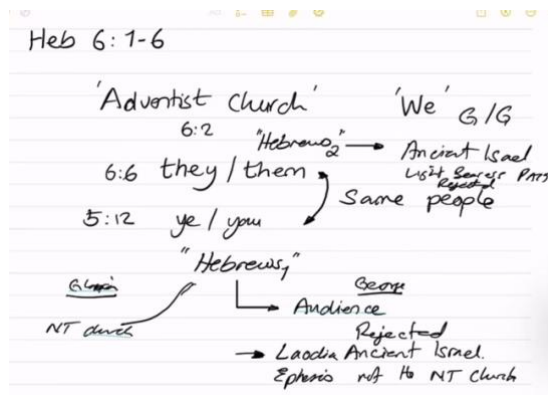 Heb 6:1-6
'Adventist Church' 'We' G/G
6:2 "Hebrews2" → Ancient Israel
Light Rejected
6:6 they/them Same people
5:12 ye/you
"Hebrews1"
George
Audience
NT church Rejected
→ Laodia Ancient Israel.
Ephesis not to NT Church